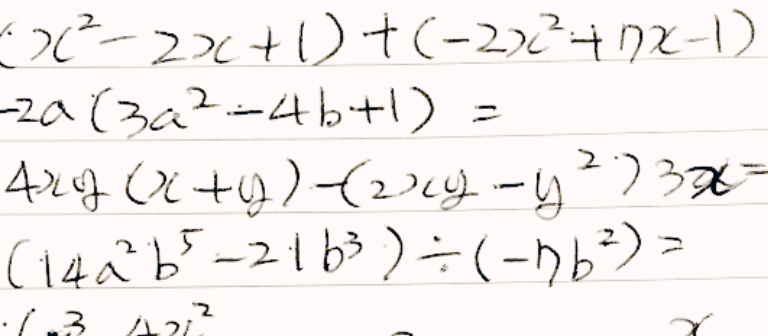 (x²-2x+1)+(-2x²+7x-1)
-2a(3a²-4b+1)=
4xy(x+y)-(2xy-y²)3x=
(14a²b⁵-21b³)÷(-7b²)=